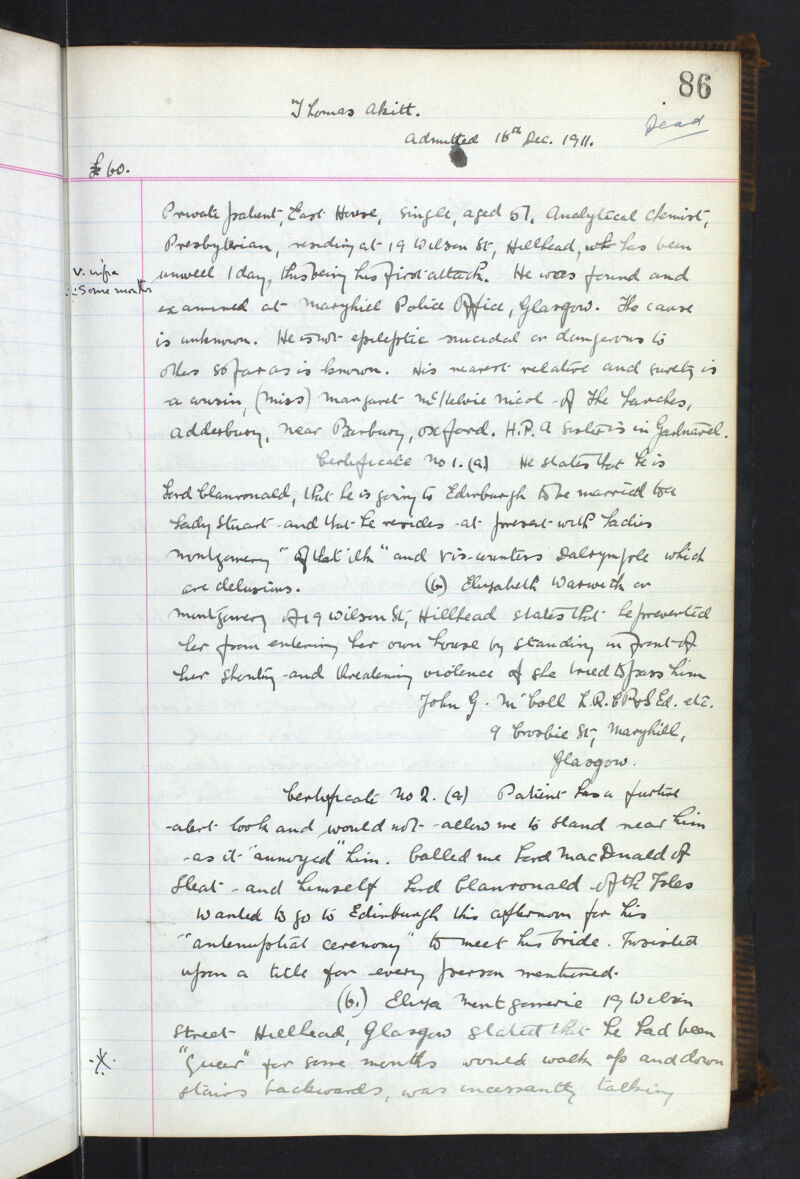 86
Thomas Akitt.
Dead
Admitted 16th Dec. 1911.
£60.
Private patient, East House, single, aged 57, Analytical Chemist,
Presbyterian, residing at 19 Wilson St, Hillhead, who has been
V. infra
unwell 1 day, this being his first attack. He was found and
∴ Some months
examined at Maryhill Police Office, Glasgow. The cause
is unknown. He is not epileptic suicidal or dangerous to
others so far as is known. His nearest relative and surety is
a cousin, (Miss) Margaret McKelvie Nicol of The Larches,
Adderbury, near Banbury, Oxford. H.P. A sister is in Gartnavel.
Certificate No 1. (a) He states that he is
Lord Clanronald, that he is going to Edinburgh to be married to a
Lady Stuart and that he resides at present with Ladies
Montgomery "of that ilk" and Vis-countess Dalrymple which
are delusions. (b) Elizabeth Warwick or
Montgomery of 19 Wilson St, Hillhead states that he prevented
her from entering her own house by standing in front of
her shouting and threatening violence if she tried to pass him
John G. McColl L.R.C.P.&S Ed. etc.
9 Crosbie St, Maryhill,
Glasgow.
Certificate No 2. (a) Patient has a furtive
alert look and would not allow me to stand near him
as it "annoyed" him. Called me Lord MacDonald of
Sleat and himself Lord Clanronald of the Isles
Wanted to go to Edinburgh this afternoon for his
"antenuptial ceremony" to meet his bride. Insisted
upon a title for every person mentioned.
(b.) Eliza Montgomerie 19 Wilson
Street Hillhead, Glasgow stated that he had been
"queer" for some months would walk up and down
stairs backwards, was incessantly talking